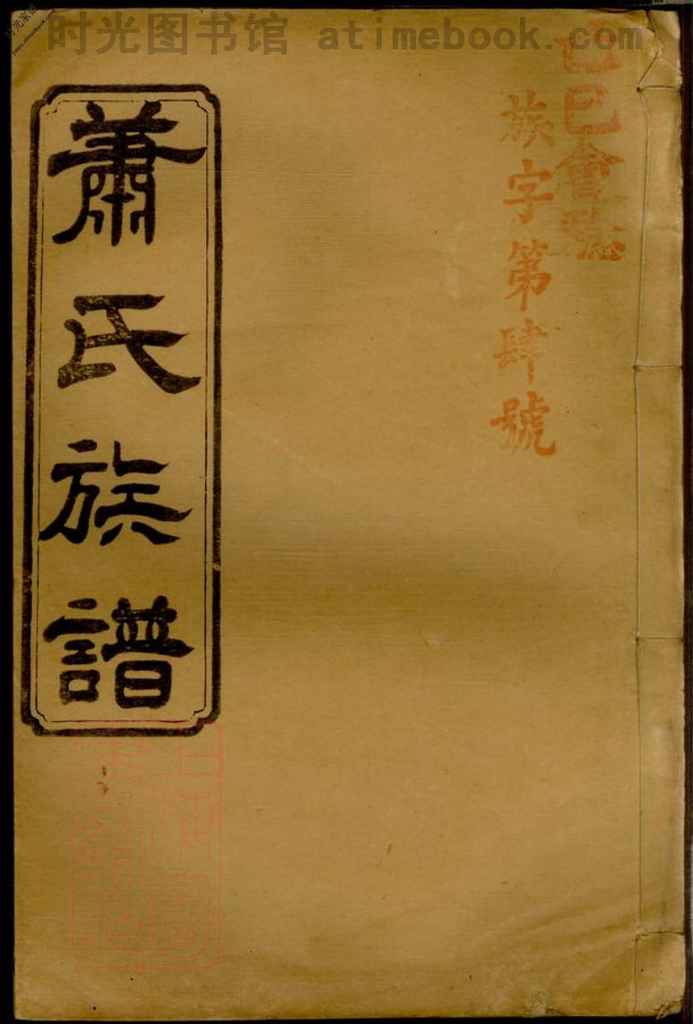 时光图书馆 atimebook.com
己巳會
族字第肆號
蕭氏族譜